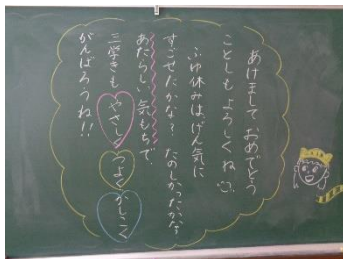 あけまして おめでとう
ことしも よろしくね
ふゆ休みは、げん気に
すごせたかな？ たのしかったかな？
あたらしい気もちで、
三学きも やさしく つよく かしこく
がんばろうね!!